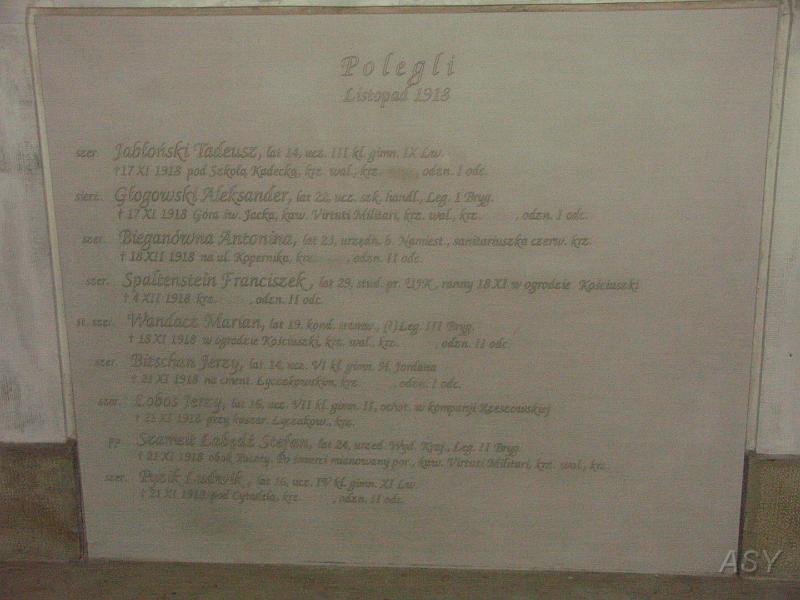 Polegli
Listopad 1918
szer. Jabłoński Tadeusz, lat 14, ucz. III kl. gimn. IX Lw.
†17 XI 1918 pod Szkołą Kadecką, krz. wal., krz. , odzn. I odc.
sierż. Głogowski Aleksander, lat 22, ucz. szk. handl., Leg. I Bryg.
† 17 XI 1918 Góra św. Jacka, kaw. Virtuti Militari, krz. wal., krz. , odzn. I odc.
szer. Bieganówna Antonina, lat 23, urzędn. b. Namiest., sanitariuszka czerw. krz.
† 18 XII 1918 na ul. Kopernika, krz. , odzn. II odc.
szer. Spaltenstein Franciszek, lat 29, stud. pr. UJK, ranny 18 XI w ogrodzie Kościuszki
† 4 XII 1918 krz. , odzn. II odc.
st. szer. Wandacz Marian, lat 19, kond. (?) Leg. III Bryg.
† 18 XI 1918 w ogrodzie Kościuszki, krz. wal., krz. , odzn. II odc.
szer. Bitschan Jerzy, lat 14, ucz. VI kl. gimn. H. Jordana
† 21 XI 1918 na cment. Łyczakowskim, krz. , odzn. I odc.
szer. Lobos Jerzy, lat 16, ucz. VII kl. gimn. II, ochot. w kompanji Rzeszowskiej
† 21 XI 1918 przy koszar. Łyczakow., krz.
pp. Szameit Łabędź Stefan, lat 24, urzęd. Wyd. Kraj., Leg. II Bryg.
† 21 XI 1918 obok Poczty. Po śmierci mianowany por., kaw. Virtuti Militari, krz. wal., krz.
szer. Pyzik Ludwik, lat 16, ucz. IV kl. gimn. XI Lw.
† 21 XI 1918 pod Cytadelą, krz. , odzn. II odc.
ASY